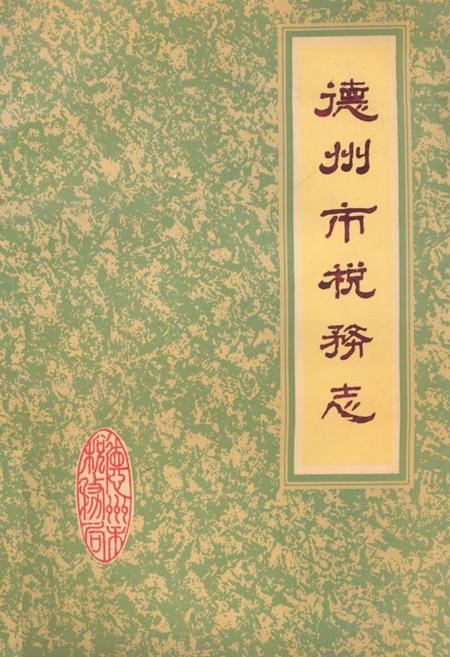 德州市税務志
德州市
税務局